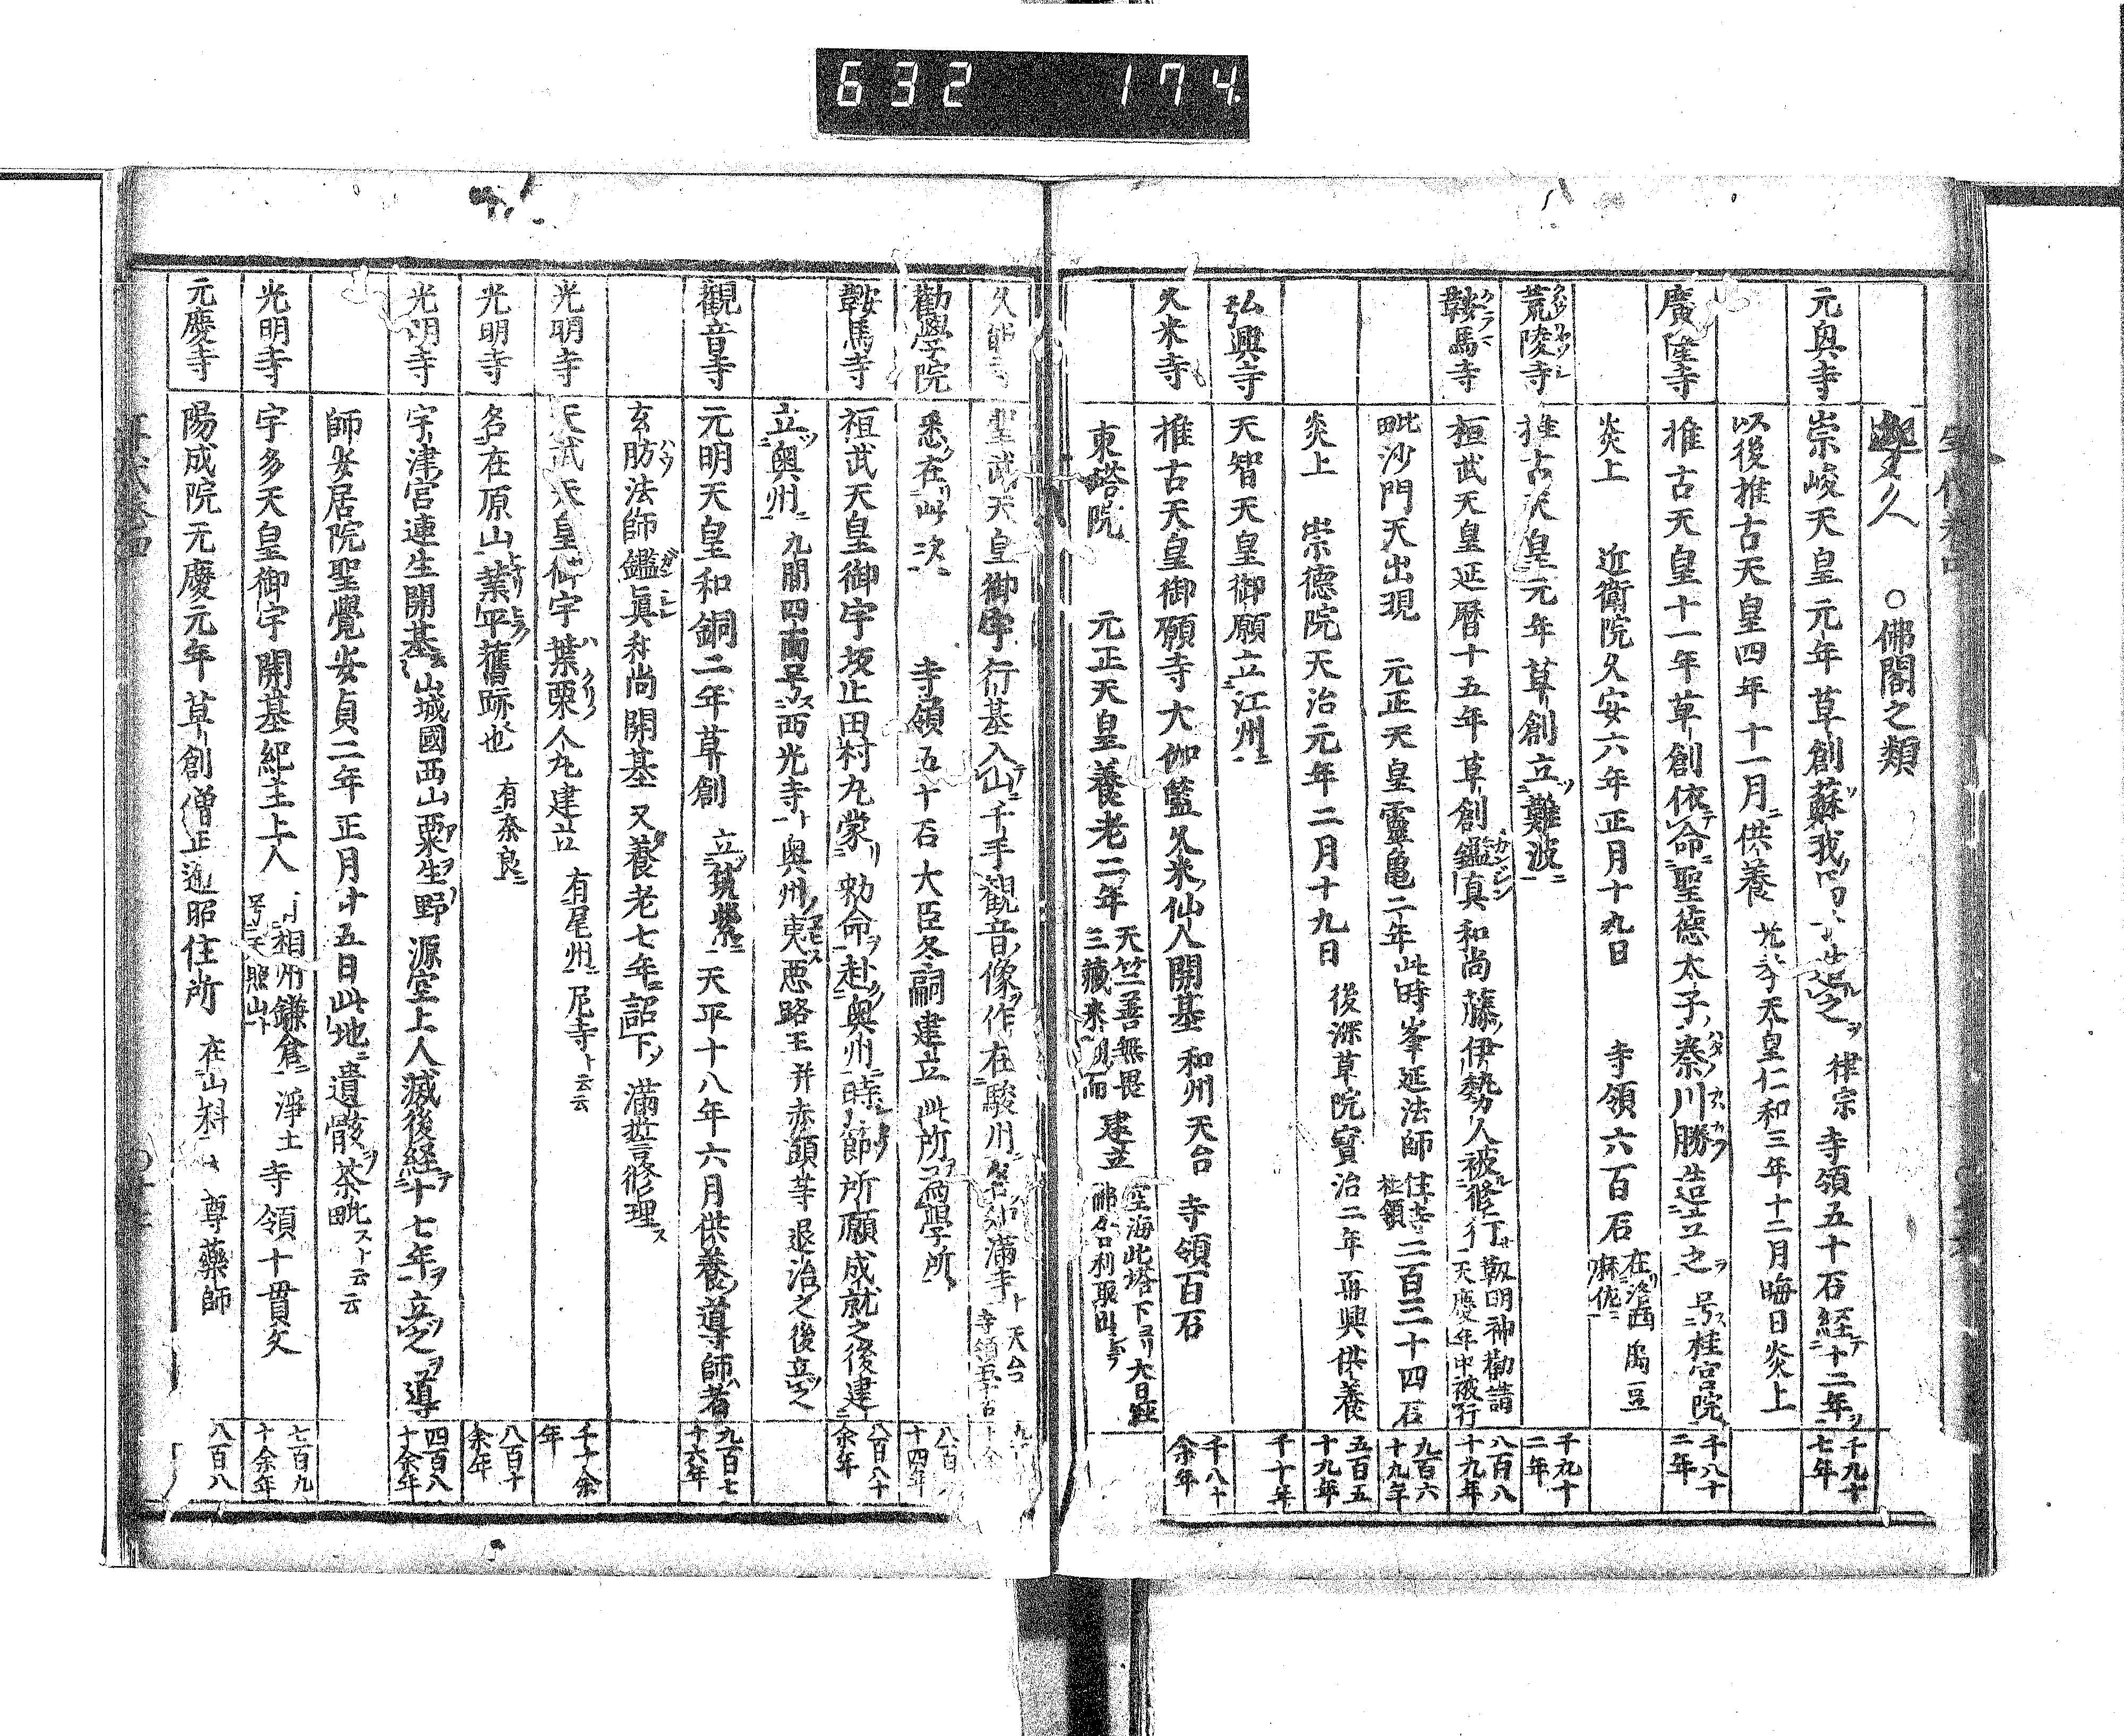 632 174
○佛閣之類
元興寺 崇峻天皇元年草創蘇我 造之 律宗 寺領五十石経十二年
千九十七年
以後推古天皇四年十一月供養 光孝天皇仁和三年十二月晦日炎上
廣隆寺 推古天皇十一年草創依命聖德太子秦川勝造立之 号桂宮院
千八十二年
炎上 近衛院久安六年正月十九日 寺領六百石 在洛西
荒陵寺 推古天皇元年草創立難波
千九十二年
鞍馬寺 桓武天皇延暦十五年草創鑑真和尚藤伊勢人被修行 靱明神勸請天慶年中被行
八百八十九年
毗沙門天出現 元正天皇靈亀二年此時峯延法師住寺 社領二百三十四石
九百六十九年
炎上 崇德院天治元年二月十九日 後深草院寳治二年再興供養
五百五十九年
弘興寺 天智天皇御願立江州
千十年
久米寺 推古天皇御願寺大伽藍久米仙人開基 和州天台 寺領百石
千八十余年
東塔院 元正天皇養老二年 天竺善無畏三藏来朝而 建立 空海此塔下 大日經
聖武天皇御宇行基入山千手觀音像作在駿州 滿寺 天台
勸學院 悉在此次 寺領五十石 大臣冬嗣建立 此所 學所
八百 十四年
鞍馬寺 桓武天皇御宇坂上田村丸蒙勅命赴奥州時節所願成就之後建
八百八十余年
立奥州 九間四面号西光寺 奥州夷悪路王并赤頭等退治之後立之
觀音寺 元明天皇和銅二年草創 立筑紫 天平十八年六月供養導師者
九百七十六年
玄肪法師鑑眞和尚開基 又養老七年詔下滿誓修理ス
光明寺 天武天皇御宇葉栗人丸建立 有尾州尼寺ト云云
千十余年
光明寺 名在原山業平舊跡也 有奈良
八百十余年
光明寺 宇津宮連生開基山城國西山粟生野 源空上人滅後経十七年立之 導
四百八十余年
師安居院聖覺安貞二年正月廿五日此地遺骸茶毗スト云云
光明寺 宇多天皇御宇開基紀主上人 相州鎌倉 号天照山 淨土 寺領十貫文
七百九十余年
元慶寺 陽成院元慶元年草創僧正遍昭住所 在山科 尊藥師
八百八